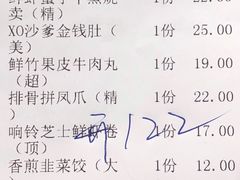 卖（精） 1份 22.00
XO沙爹金钱肚（ 1份 25.00
美）
鲜竹果皮牛肉丸 1份 19.00
（超）
排骨拼凤爪（精 1份 22.00
）
开122
响铃芝士鲜 卷 1份 17.00
（顶）
香煎韭菜饺（大 1份 12.00